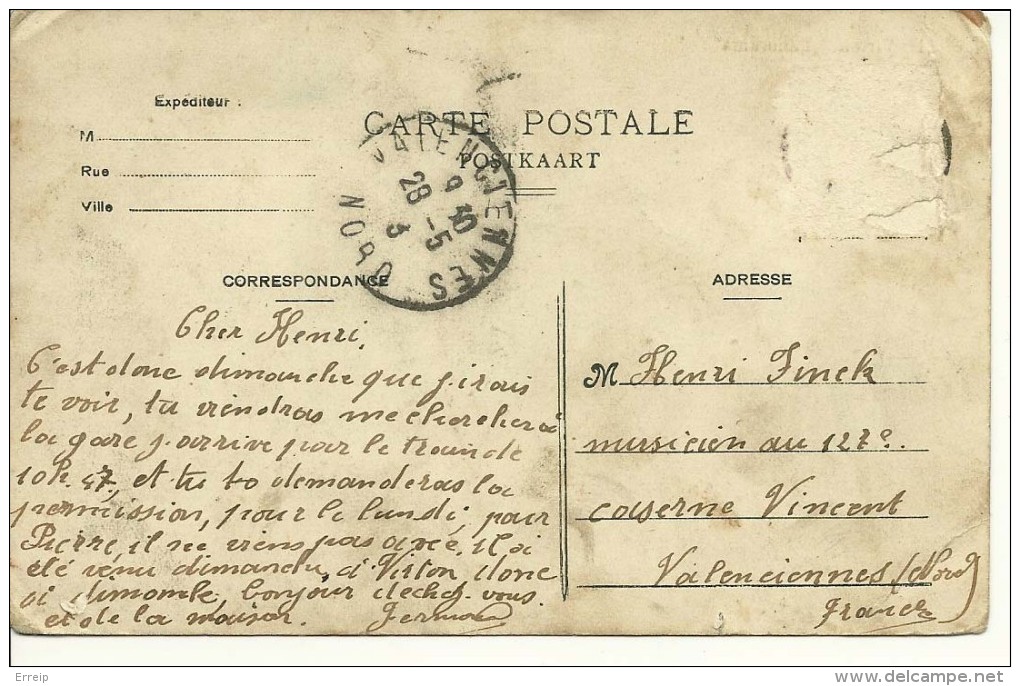 Expéditeur :
M
Rue
Ville
CARTE POSTALE
POSTKAART
VALENCIENNES
9 30
28 -5
3
NORD
CORRESPONDANCE
ADRESSE
Cher Henri,
C'est donc dimanche que j'irais
te voir, tu viendras me chercher à
la gare j'arrive par le train de
10h 47, et tu to demanderas la
permission, pour le lundi, pour
Pierre, il ne viens pas avec, il a
été venu dimanche, à Virton, donc
a dimanche, bonjour de chez vous.
et de la maison.
M Henri Finck
musicien au 127e.
caserne Vincent
Valenciennes (Nord)
France
Erreip
www.delcampe.net